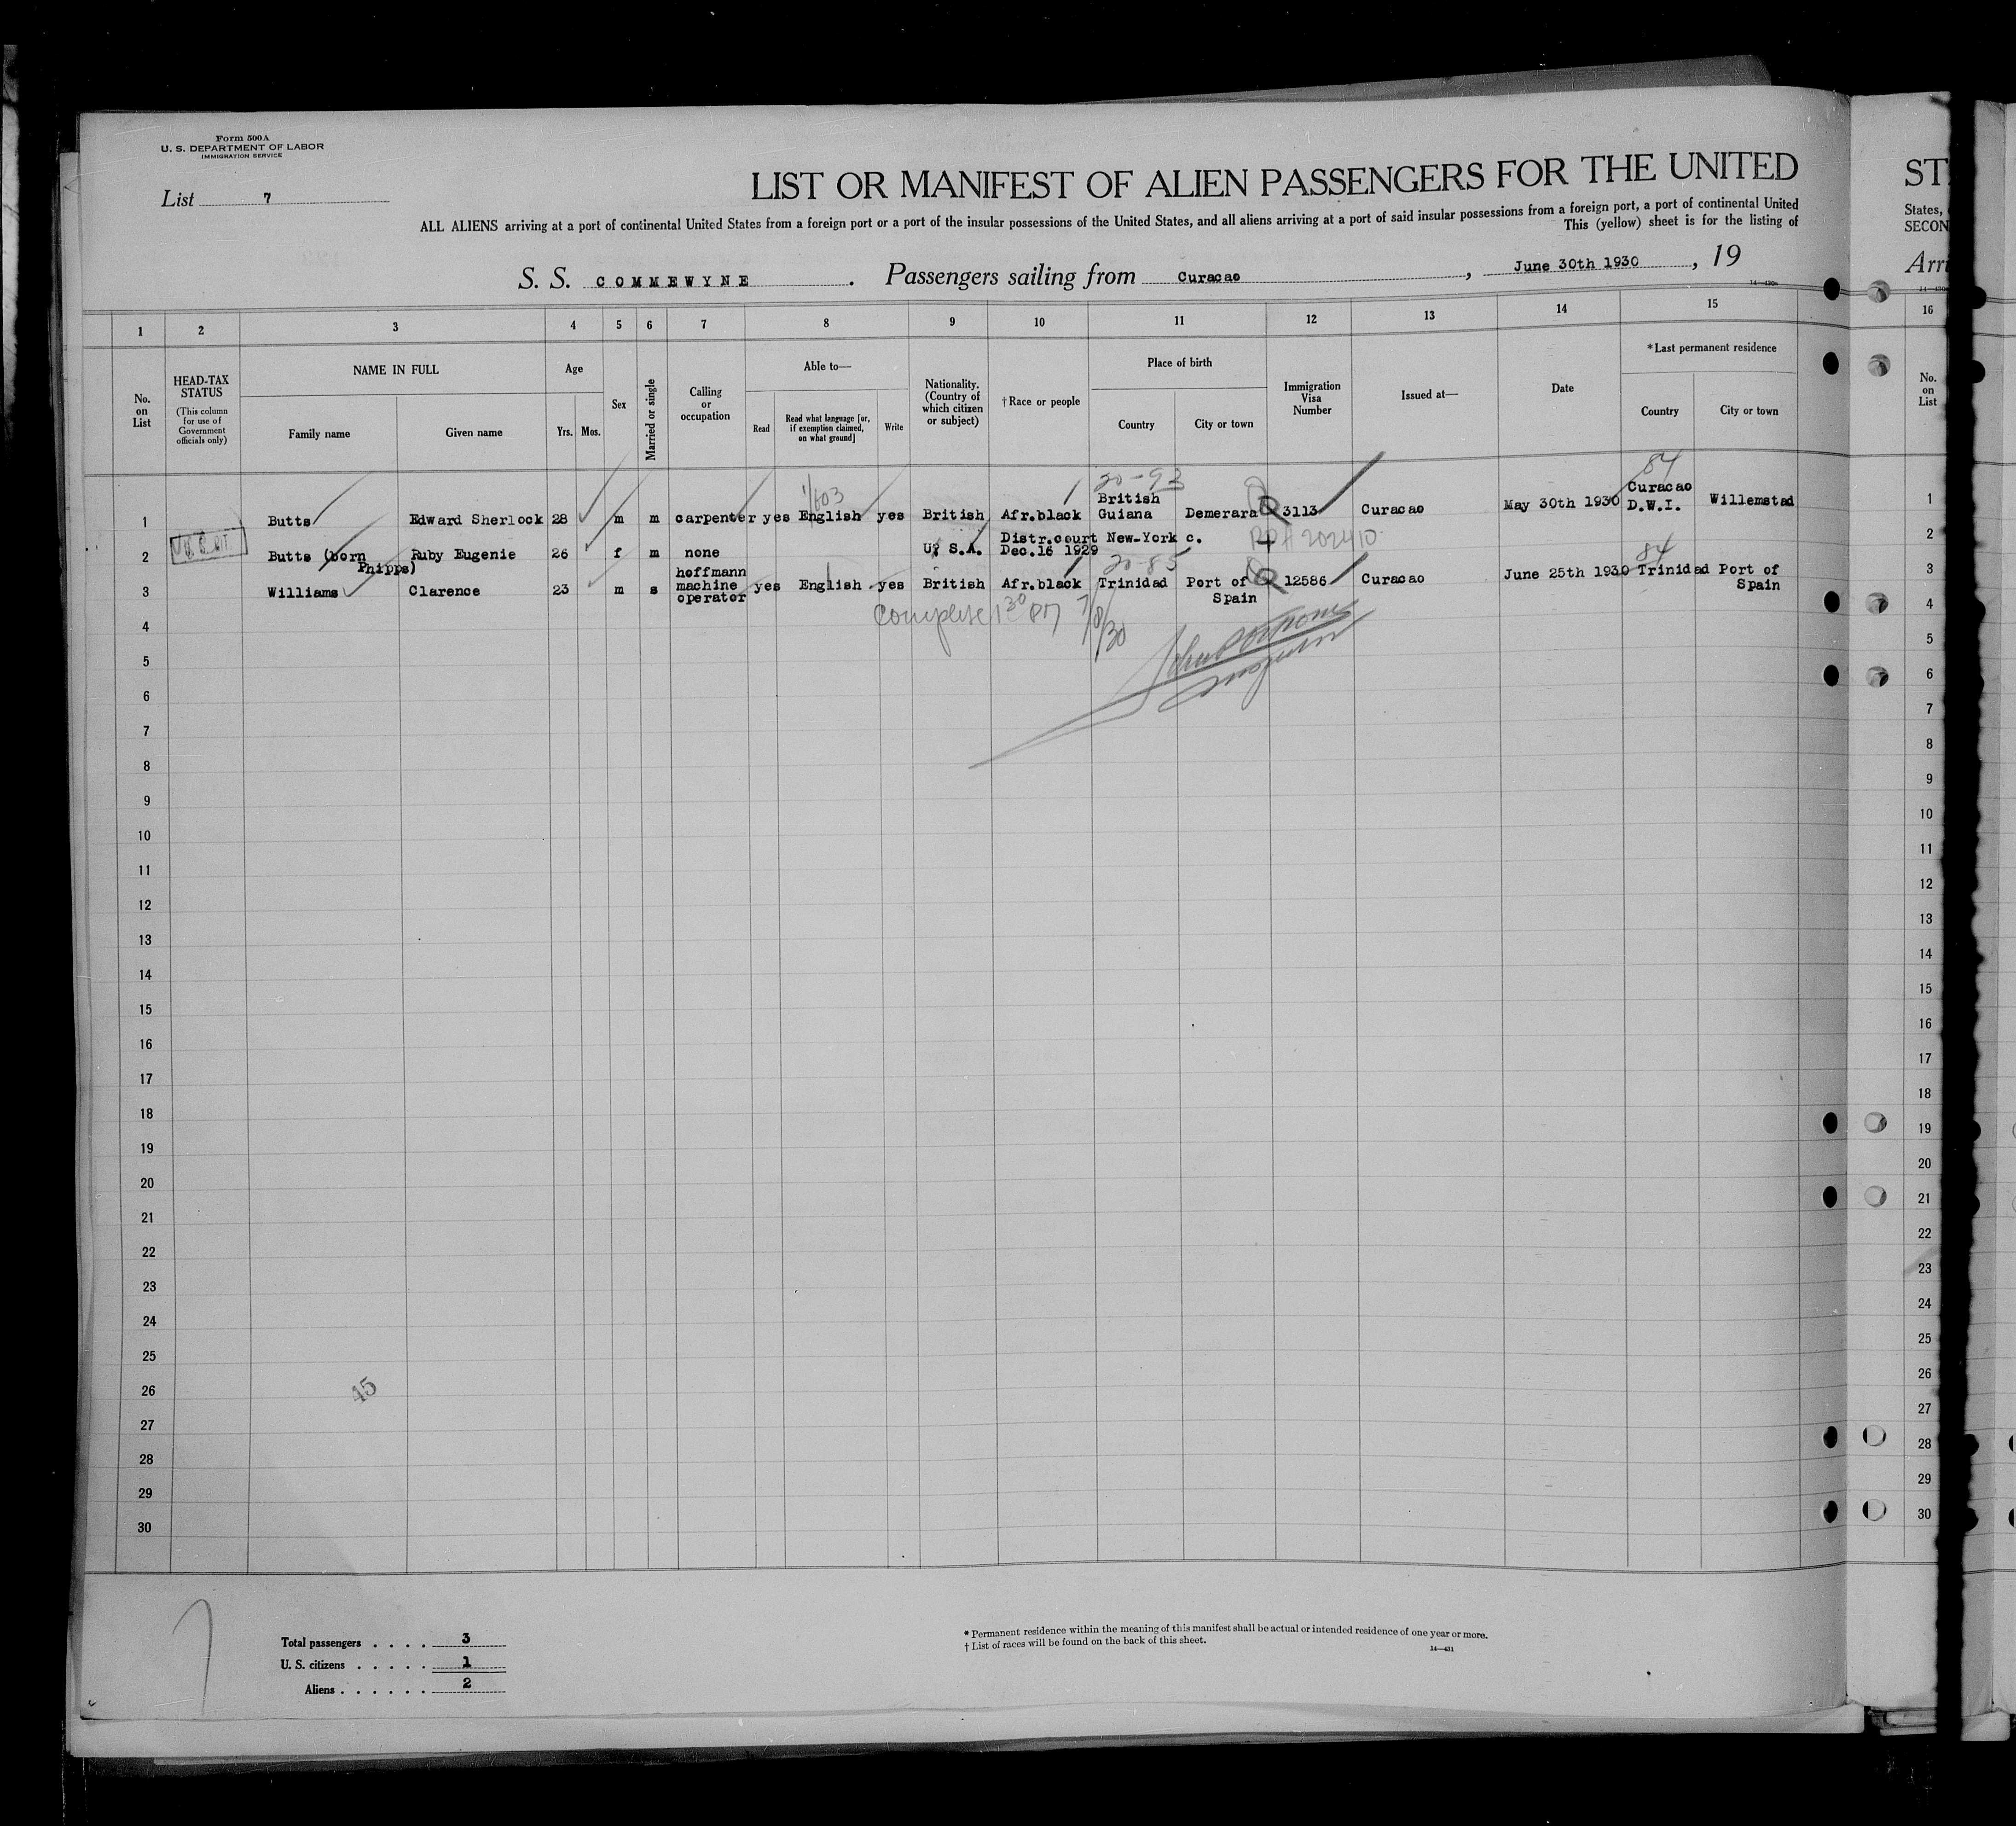 Form 500A
U. S. DEPARTMENT OF LABOR
IMMIGRATION SERVICE
List 7
LIST OR MANIFEST OF ALIEN PASSENGERS FOR THE UNITED
ST
ALL ALIENS arriving at a port of continental United States from a foreign port or a port of the insular possessions of the United States, and all aliens arriving at a port of said insular possessions from a foreign port, a port of continental United
States,
This (yellow) sheet is for the listing of
SECON
S. S. COMMEWYNE. Passengers sailing from Curacao, June 30th 1930, 19
Arri
1 2 3 4 5 6 7 8 9 10 11 12 13 14 15 16
No. on List
HEAD-TAX STATUS (This column for use of Government officials only)
NAME IN FULL
Family name Given name
Age
Yrs. Mos.
Sex
Married or single
Calling or occupation
Able to—
Read
Read what language [or, if exemption claimed, on what ground]
Write
Nationality. (Country of which citizen or subject)
† Race or people
Place of birth
Country City or town
Immigration Visa Number
Issued at—
Date
* Last permanent residence
Country City or town
No. on List
20-93 84
1 Butts Edward Sherlock 28 m m carpenter yes English yes British Afr.black British Guiana Demerara 3113 Curacao May 30th 1930 Curacao D.W.I. Willemstad 1
2 Butts (born Phipps) Ruby Eugenie 26 f m none U. S.A. Distr.court New-York c. Dec.16 1929 2
20-85 84
3 Williams Clarence 23 m s hoffmann machine operator yes English yes British Afr.black Trinidad Port of Spain 12586 Curacao June 25th 1930 Trinidad Port of Spain 3
4 4
5 5
6 6
7 7
8 8
9 9
10 10
11 11
12 12
13 13
14 14
15 15
16 16
17 17
18 18
19 19
20 20
21 21
22 22
23 23
24 24
25 25
26 26
45
27 27
28 28
29 29
30 30
Total passengers . . . . 3
U. S. citizens . . . . . 1
Aliens . . . . . . 2
* Permanent residence within the meaning of this manifest shall be actual or intended residence of one year or more.
† List of races will be found on the back of this sheet.
14—431